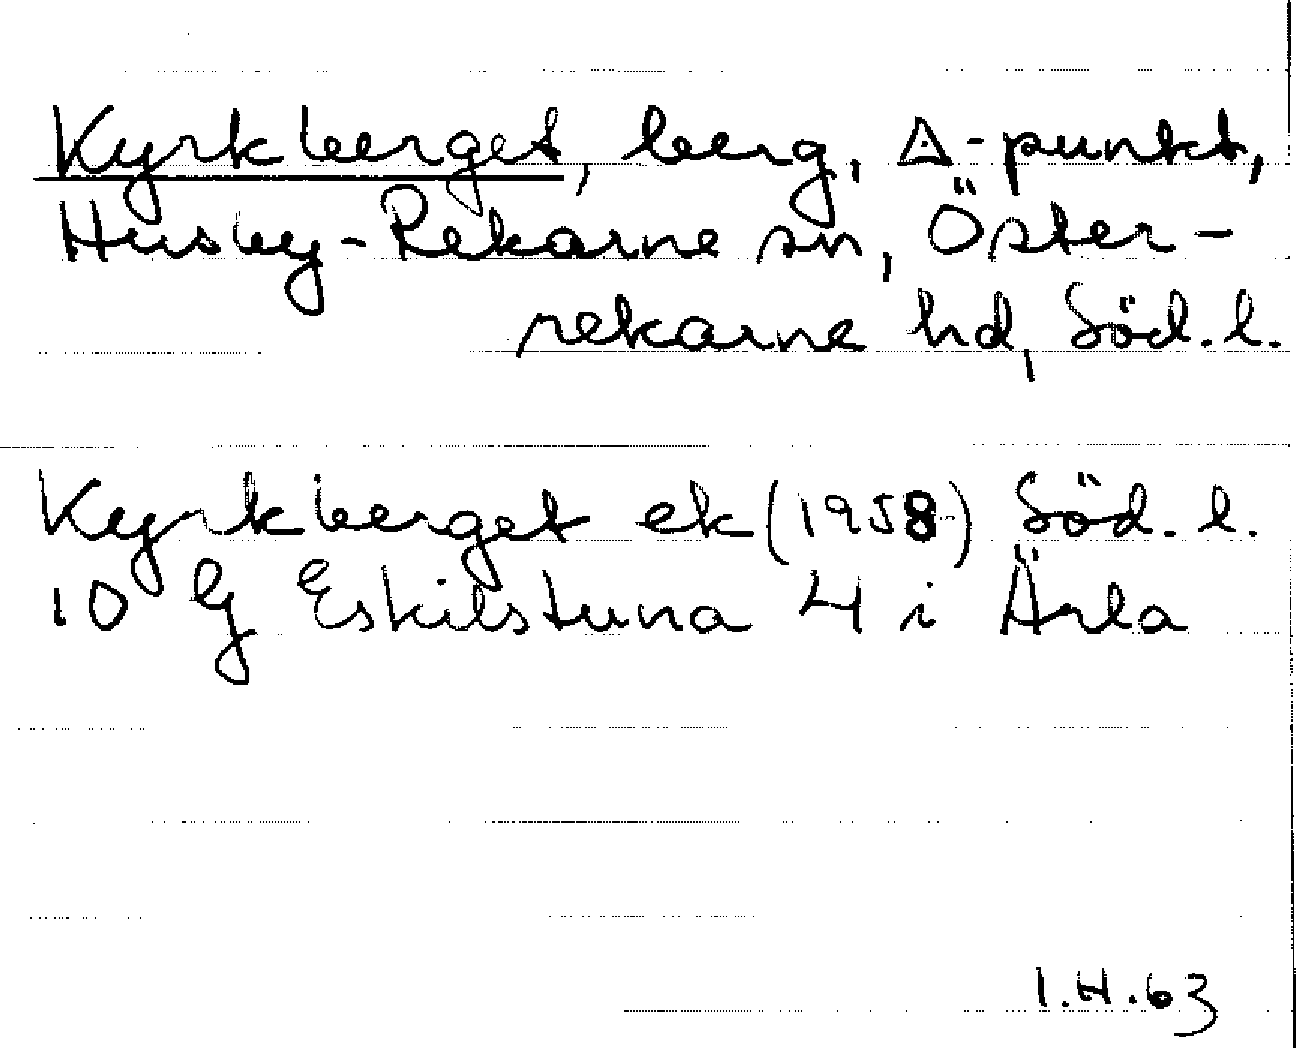 Kyrkberget, berg, △-punkt,
Husby-Rekarne sn, Öster-
rekarne hd, Söd.l.
Kyrkberget ek (1958) Söd. l.
10 G Eskilstuna 4 i Ärla
I.H.63